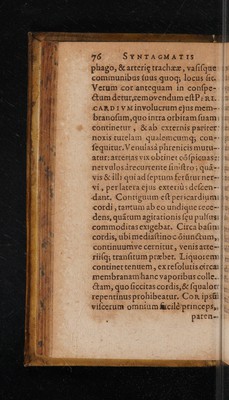 76 SYNTAGMATIS
phago, & arterię trachææ, vasisque
communibus suus quoq; locus sit.
Verum cor antequam in conspe-
ctum detur, removendum est PERI-
CARDIVM involucrum ejus mem-
branosum, quo intra orbitam suam
continetur, & ab externis pariter
noxis tutelam qualemcumq; con-
sequitur. Venulas á phrenicis mutu-
atur: arterias vix obtinet cõspicuas:
nervulos á recurrente sinistro, quã-
vis & illi qui ad septum feruntur ner-
vi, per latera ejus exteriùs descen-
dant. Contiguum est pericardium
cordi, tantum ab eo undique rece-
dens, quãtum agitationis seu pulsus
commoditas exigebat. Circa basim
cordis, ubi mediastino cõiunctum,
continuumve cernitur, venis arte-
riisq; transitum præbet. Liquorem
continet tenuem, ex resolutis circa
membranam hanc vaporibus colle-
ctam, quo siccitas cordis, & squalor
repentinus prohibeatur. COR ipsũ
viscerum omnium facilè princeps,
paren-